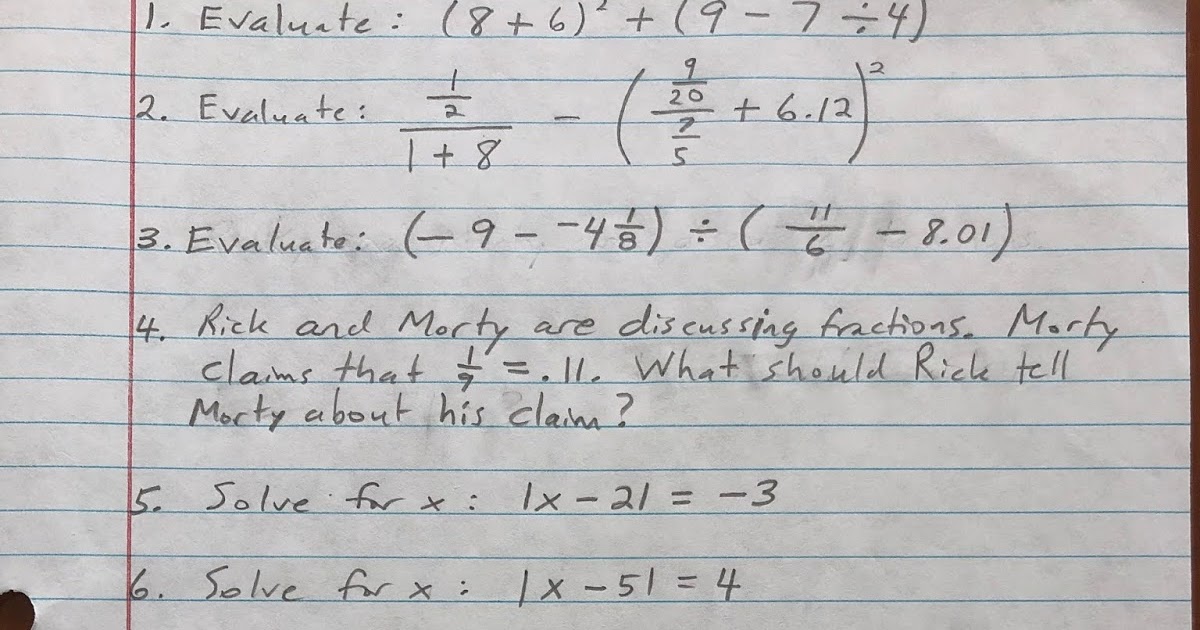 1. Evaluate: (8 + 6)² + (9 - 7 ÷ 4)
2. Evaluate: (1/2)/(1 + 8) - ((9/20)/(7/5) + 6.12)²
3. Evaluate: (- 9 - -4 1/8) ÷ (11/6 - 8.01)
4. Rick and Morty are discussing fractions. Morty
claims that 1/9 = .11. What should Rick tell
Morty about his claim?
5. Solve for x: |x - 2| = -3
6. Solve for x: |x - 5| = 4